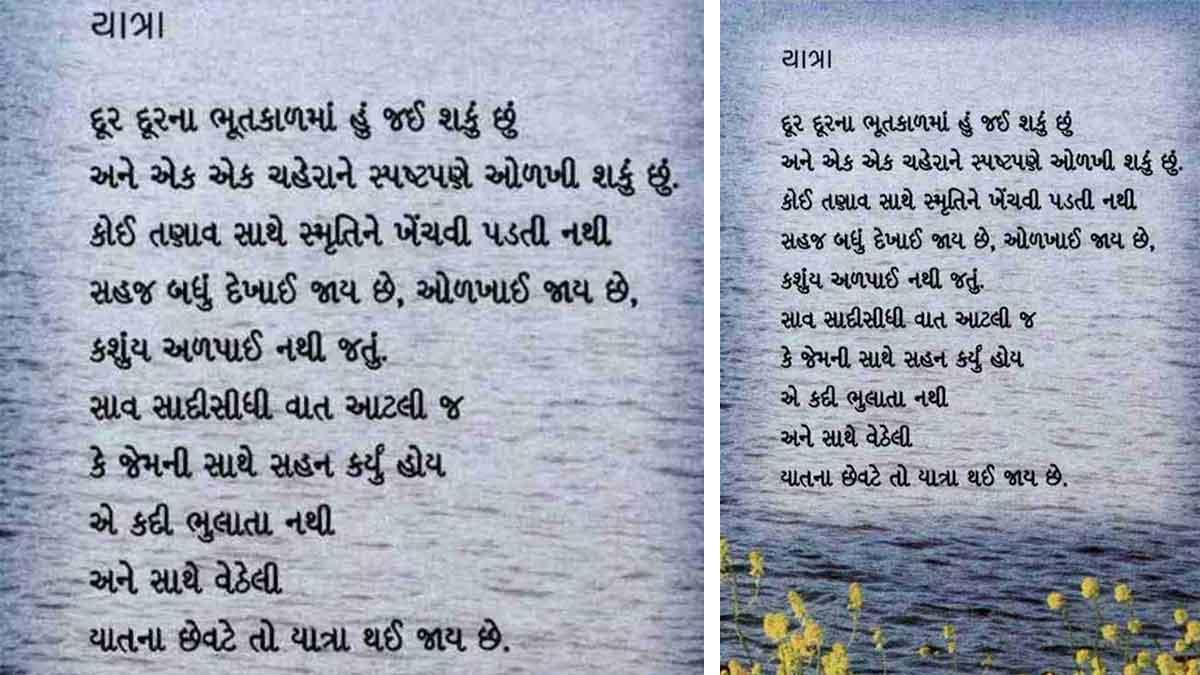 યાત્રા
દૂર દૂરના ભૂતકાળમાં હું જઈ શકું છું
અને એક એક ચહેરાને સ્પષ્ટપણે ઓળખી શકું છું.
કોઈ તણાવ સાથે સ્મૃતિને ખેંચવી પડતી નથી
સહજ બધું દેખાઈ જાય છે, ઓળખાઈ જાય છે,
કશુંય અળપાઈ નથી જતું.
સાવ સાદીસીધી વાત આટલી જ
કે જેમની સાથે સહન કર્યું હોય
એ કદી ભુલાતા નથી
અને સાથે વેઠેલી
યાતના છેવટે તો યાત્રા થઈ જાય છે.
યાત્રા
દૂર દૂરના ભૂતકાળમાં હું જઈ શકું છું
અને એક એક ચહેરાને સ્પષ્ટપણે ઓળખી શકું છું.
કોઈ તણાવ સાથે સ્મૃતિને ખેંચવી પડતી નથી
સહજ બધું દેખાઈ જાય છે, ઓળખાઈ જાય છે,
કશુંય અળપાઈ નથી જતું.
સાવ સાદીસીધી વાત આટલી જ
કે જેમની સાથે સહન કર્યું હોય
એ કદી ભુલાતા નથી
અને સાથે વેઠેલી
યાતના છેવટે તો યાત્રા થઈ જાય છે.